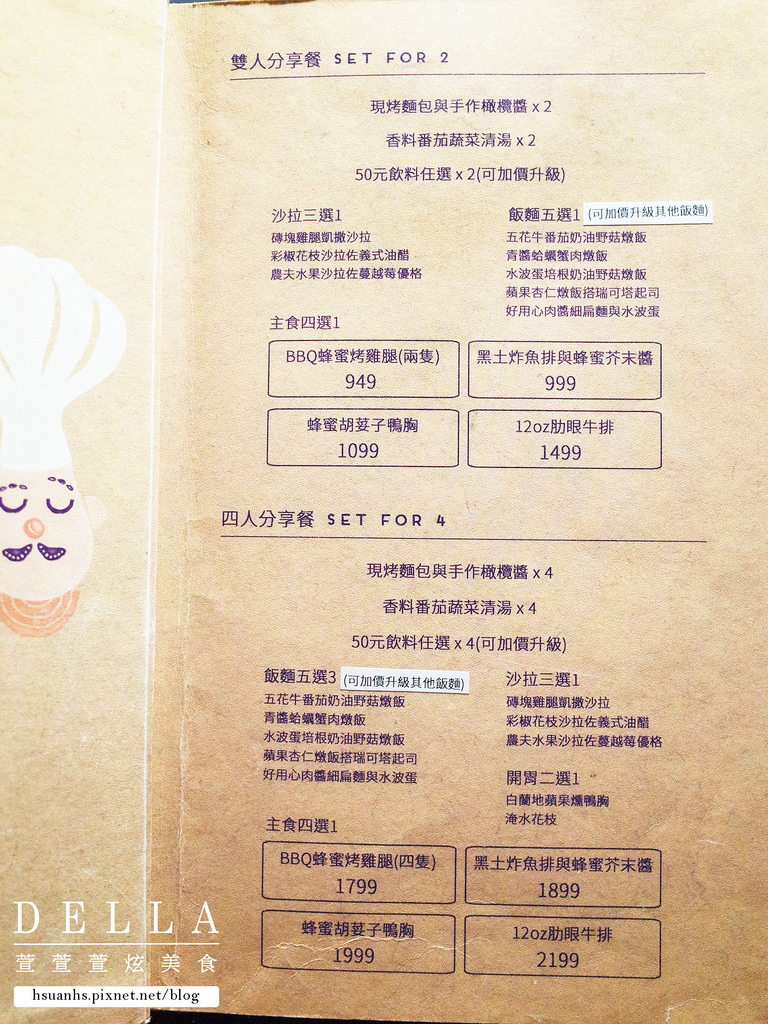 雙人分享餐 SET FOR 2
現烤麵包與手作橄欖醬 x 2
香料番茄蔬菜清湯 x 2
50元飲料任選 x 2(可加價升級)
沙拉三選1
磚塊雞腿凱撒沙拉
彩椒花枝沙拉佐義式油醋
農夫水果沙拉佐蔓越莓優格
飯麵五選1 (可加價升級其他飯麵)
五花牛番茄奶油野菇燉飯
青醬蛤蠣蟹肉燉飯
水波蛋培根奶油野菇燉飯
蘋果杏仁燉飯搭瑞可塔起司
好用心肉醬細扁麵與水波蛋
主食四選1
BBQ蜂蜜烤雞腿(兩隻)
949
黑土炸魚排與蜂蜜芥末醬
999
蜂蜜胡荽子鴨胸
1099
12oz肋眼牛排
1499
四人分享餐 SET FOR 4
現烤麵包與手作橄欖醬 x 4
香料番茄蔬菜清湯 x 4
50元飲料任選 x 4(可加價升級)
飯麵五選3 (可加價升級其他飯麵)
五花牛番茄奶油野菇燉飯
青醬蛤蠣蟹肉燉飯
水波蛋培根奶油野菇燉飯
蘋果杏仁燉飯搭瑞可塔起司
好用心肉醬細扁麵與水波蛋
沙拉三選1
磚塊雞腿凱撒沙拉
彩椒花枝沙拉佐義式油醋
農夫水果沙拉佐蔓越莓優格
開胃二選1
白蘭地蘋果燻鴨胸
淹水花枝
主食四選1
BBQ蜂蜜烤雞腿(四隻)
1799
黑土炸魚排與蜂蜜芥末醬
1899
蜂蜜胡荽子鴨胸
1999
12oz肋眼牛排
2199
DELLA
萱萱萱炫美食
hsuanhs.pixnet.net/blog